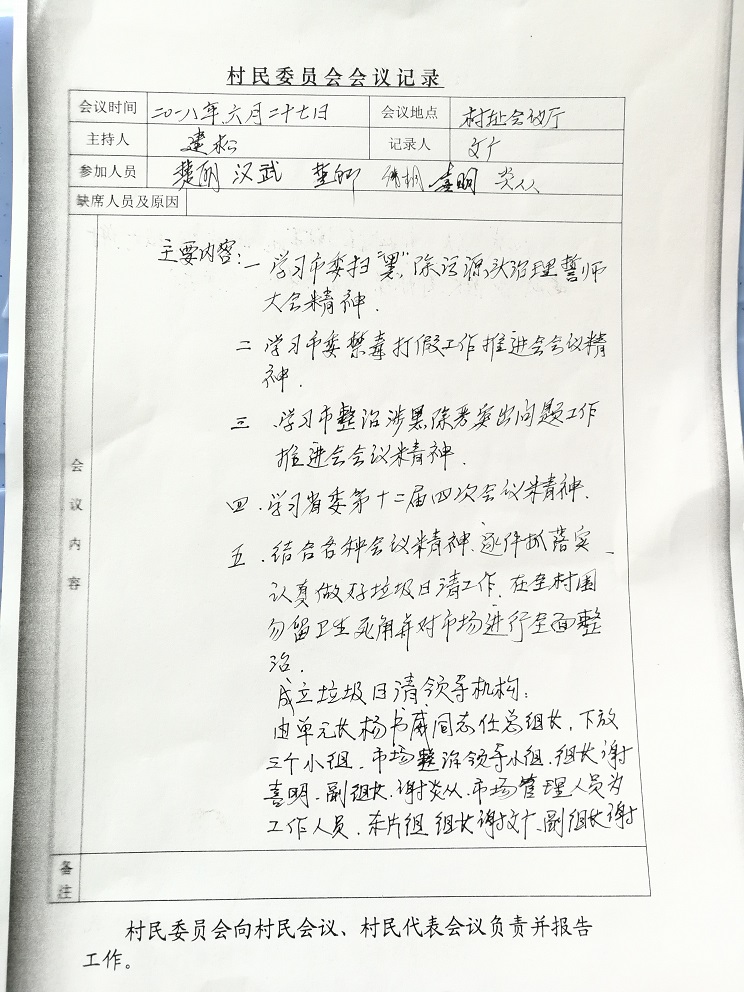 村民委员会会议记录
会议时间 二〇一八年六月二十七日 会议地点 村址会议厅
主持人 建松 记录人 文广
参加人员 楚朋 汉武 喜明 炎从
缺席人员及原因
会议内容
主要内容：一 学习市委扫“黑”除污源头治理誓师
大会精神.
二 学习市委禁毒打假工作推进会会议精
神.
三 .学习市整治涉黑除恶突出问题工作
推进会会议精神.
四 .学习省委第十二届四次会议精神.
五 .结合各种会议精神、逐件抓落实、
认真做好垃圾日清工作.在全村围
勿留卫生死角并对市场进行全面整
治.
成立垃圾日清领导机构：
由单元长杨书威同志任总组长，下放
三个小组.市场整治领导小组.组长谢
喜明.副组长.谢炎从.市场管理人员为
工作人员.东片组 组长谢文广、副组长谢
备注
村民委员会向村民会议、村民代表会议负责并报告
工作。